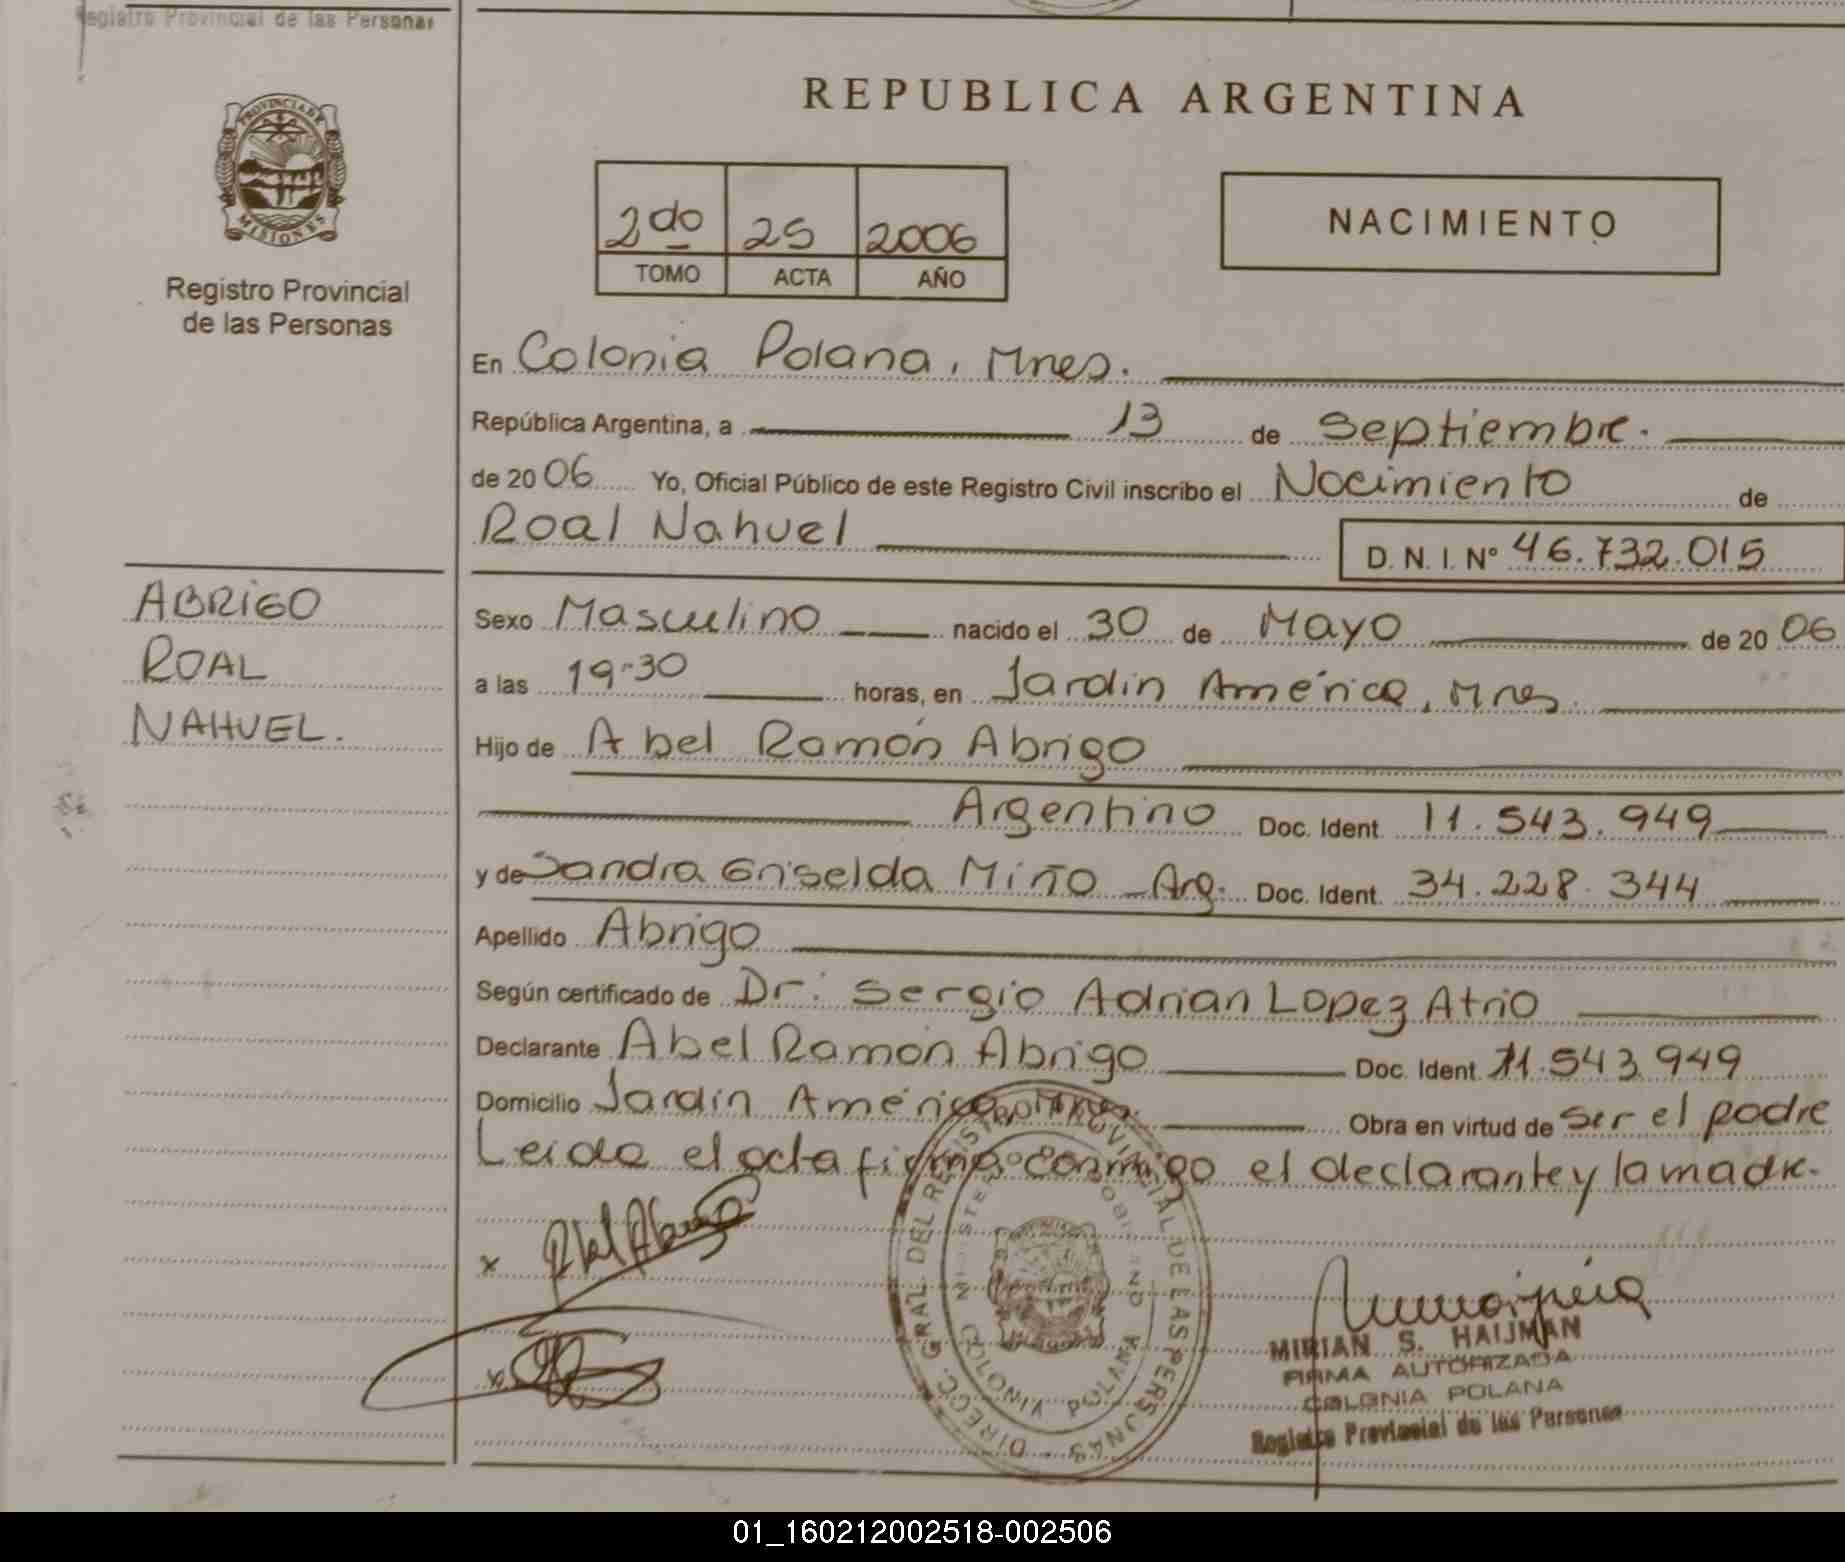 Registro Provincial de las Personas
PROVINCIA DE
MISIONES
Registro Provincial
de las Personas
REPUBLICA ARGENTINA
2do 25 2006
TOMO ACTA AÑO
NACIMIENTO
En Colonia Polana, Mnes.
República Argentina, a 13 de Septiembre.
de 2006 Yo, Oficial Público de este Registro Civil inscribo el Nacimiento de
Roal Nahuel D. N. I. Nº 46.732.015
ABRIGO
ROAL
NAHUEL.
Sexo Masculino nacido el 30 de Mayo de 2006
a las 19-30 horas, en Jardín América, Mnes.
Hijo de Abel Ramón Abrigo
Argentino Doc. Ident. 11.543.949
y de Sandra Griselda Miño - Arg. Doc. Ident. 34.228.344
Apellido Abrigo
Según certificado de Dr. Sergio Adrian Lopez Atrio
Declarante Abel Ramón Abrigo Doc. Ident. 11.543.949
Domicilio Jardín América, Mnes. Obra en virtud de ser el padre
Leída el acta firma conmigo el declarante y la madre.
DIRECC. GRAL. DEL REGISTRO PROVINCIAL DE LAS PERSONAS
COLONIA POLANA
x Abel Abrigo
x
MIRIAN S. HAIJMAN
FIRMA AUTORIZADA
COLONIA POLANA
Registro Provincial de las Personas
01_160212002518-002506